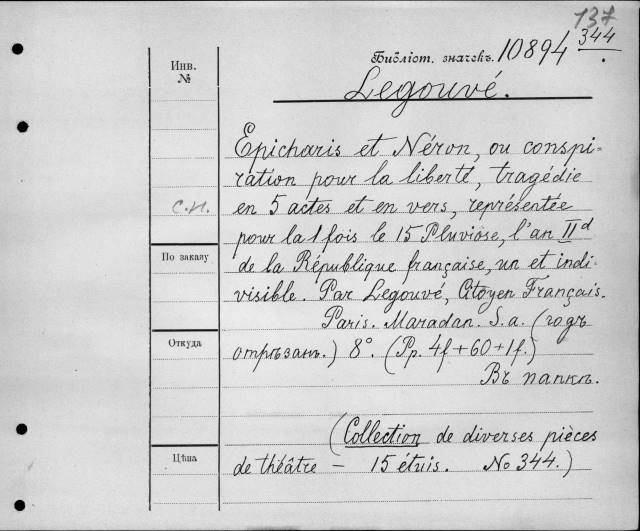 137
Библіот. значекъ. 10894 344
Инв.
№
Legouvé.
Epicharis et Néron, ou conspi-
ration pour la liberté, tragédie
С.И.
en 5 actes et en vers, représentée
pour la 1 fois le 15 Pluviose, l'an IId
По заказу
de la République française, un et indi-
visible. Par Legouvé, Citoyen Français.
Paris. Maradan. S.a. (годъ
Откуда
отрѣзанъ.) 8°. (Pp. 4f+60+1f.)
Въ папкѣ.
(Collection de diverses pièces
Цѣна
de théâtre — 15 étuis. No 344.)